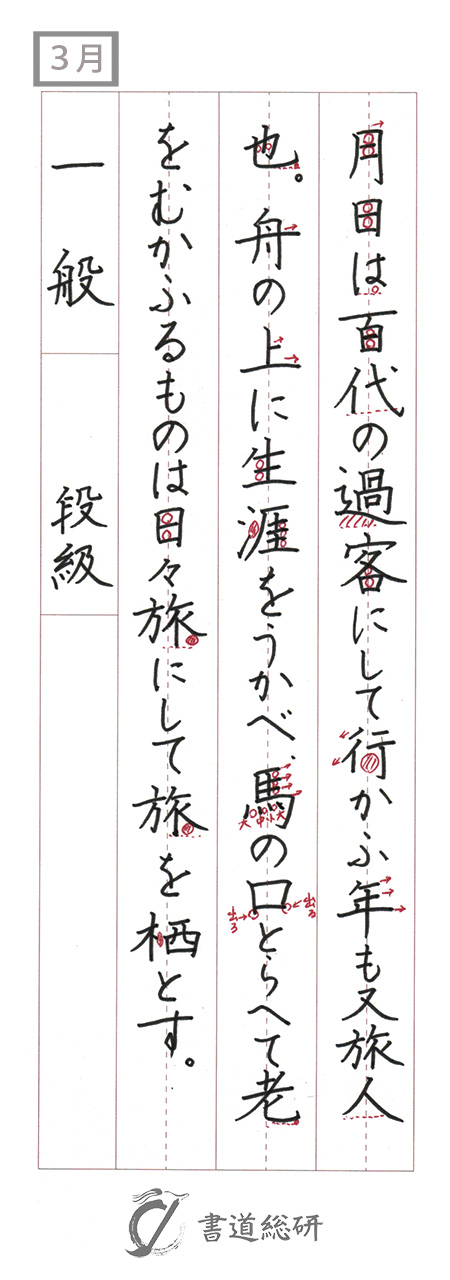 3月
月日は百代の過客にして行かふ年も又旅人
也。舟の上に生涯をうかべ、馬の口とらへて老
をむかふるものは日々旅にして旅を栖とす。
一般
段級
大中小大
出る
出る
書道総研